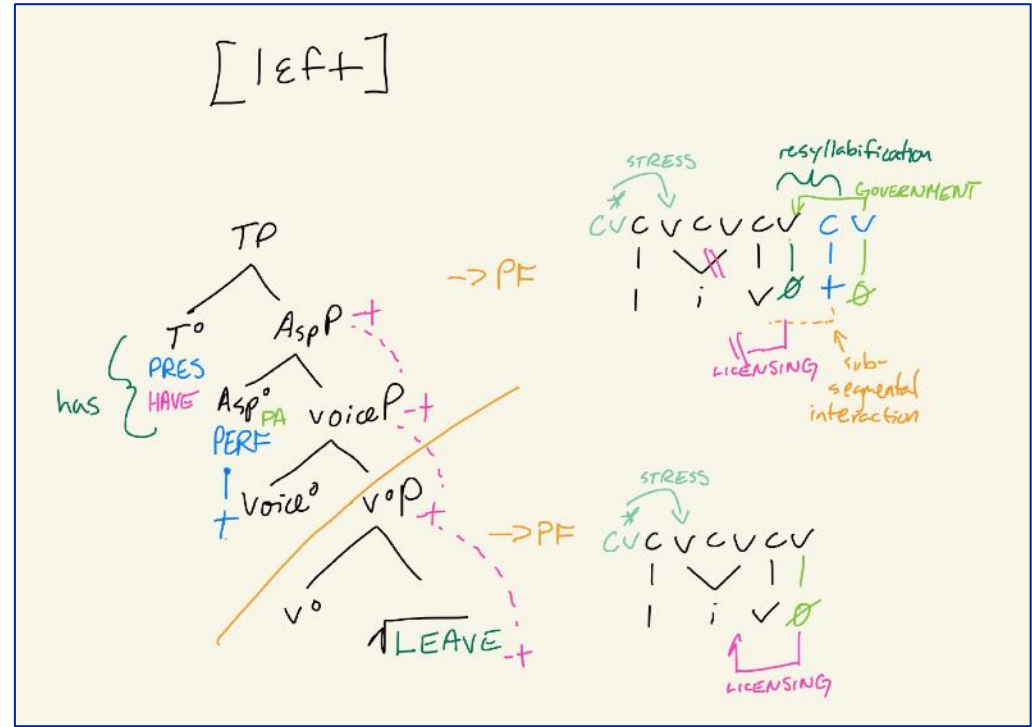 [lɛft]
TP
T° AspP -t
PRES
HAVE
has
Asp° PA voiceP -t
PERF
t
Voice° v°P -t
v° √LEAVE -t
-> PF
STRESS
resyllabification
GOVERNMENT
* 
CV C V C V C V C V
l i v ø t ø
LICENSING
sub-
segmental
interaction
-> PF
STRESS
*
CV C V C V C V
l i v ø
LICENSING